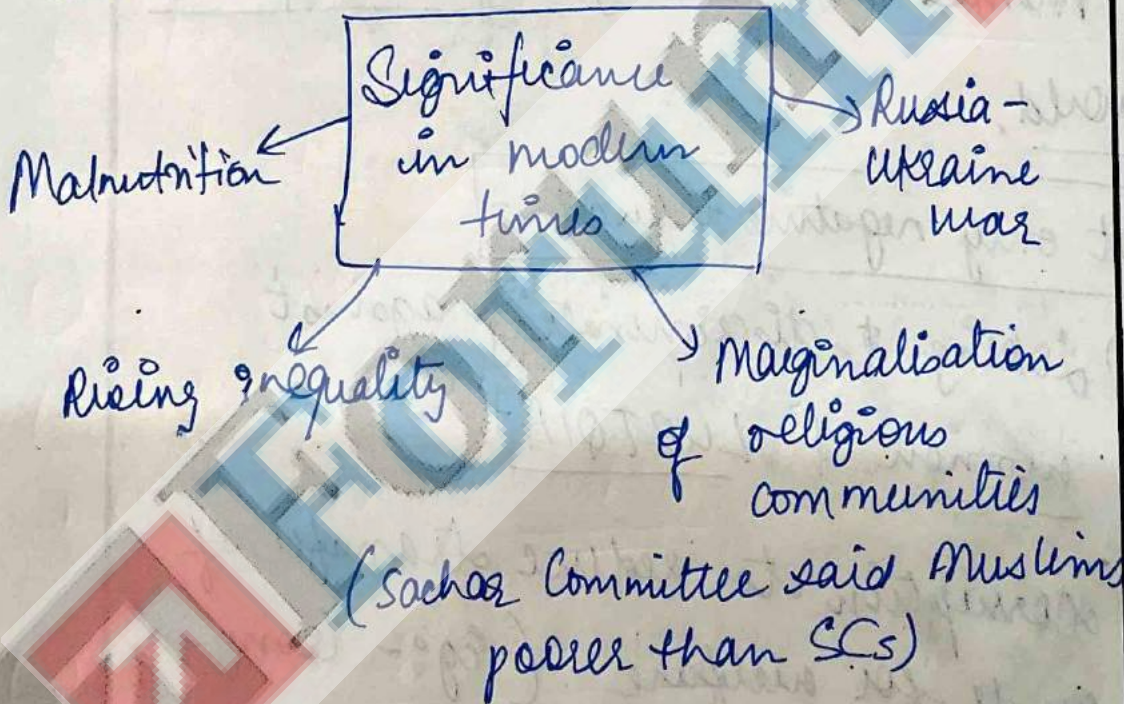 Significance
in modern
times
Malnutrition
Russia -
Ukraine
war
Rising inequality
Marginalisation
of religious
communities
(Sachar Committee said Muslims
poorer than SCs)
Forum